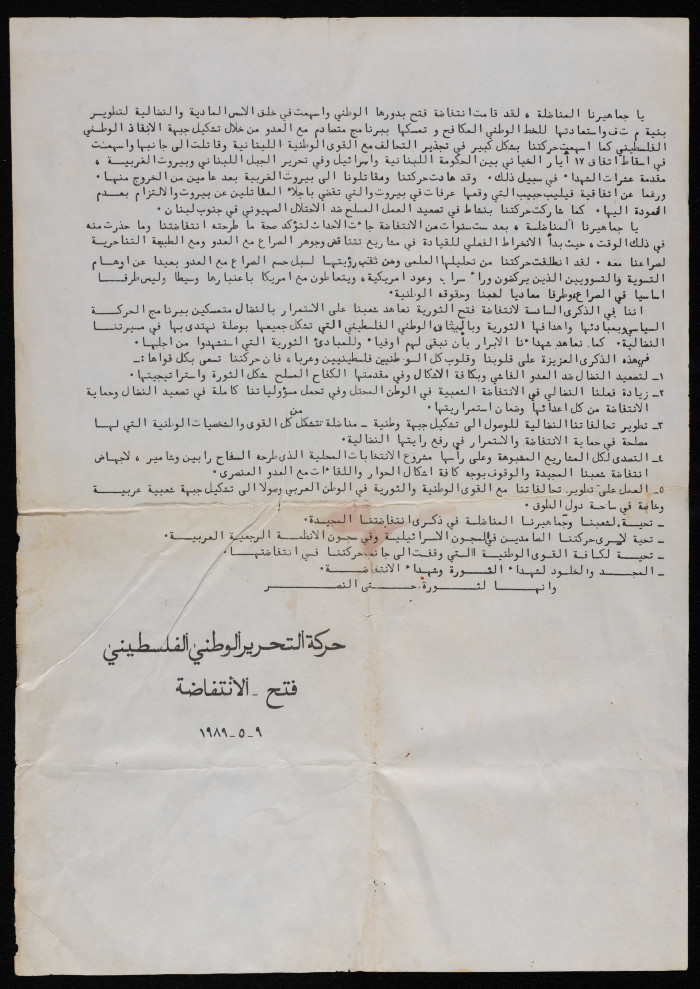 يا جماهيرنا المناضلة ، لقد قامت انتفاضة فتح بدورها الوطني واسهمت في خلق الاسس المادية والنضالية لتطوير
بنية م ت ف واستعادتها للخط الوطني المكافح و تمسكها ببرنامج متصادم مع العدو من خلال تشكيل جبهة الانقاذ الوطني
الفلسطيني كما اسهمت حركتنا بشكل كبير في تجذير التحالف مع القوى الوطنية اللبنانية وقاتلت الى جانبها واسهمت
في اسقاط اتفاق ١٧ أيار الخياني بين الحكومة اللبنانية واسرائيل وفي تحرير الجبل اللبناني وبيروت الغربية ،
مقدمة عشرات الشهداء في سبيل ذلك . وقد عادت حركتنا ومقاتلونا الى بيروت الغربية بعد عامين من الخروج منها .
ورغما عن اتفاقية فيليب حبيب التي وقعها عرفات في بيروت والتي تقضي باجلاء المقاتلين عن بيروت والالتزام بعدم
العودة اليها . كما شاركت حركتنا بنشاط في تصعيد العمل المسلح ضد الاحتلال الصهيوني في جنوب لبنان .
يا جماهيرنا المناضلة ، بعد ست سنوات من الانتفاضة جاءت الاحداث لتؤكد صحة ما طرحته انتفاضتنا وما حذرت منه
في ذلك الوقت ، حيث بدأ الانخراط الفعلي للقيادة في مشاريع تتناقض وجوهر الصراع مع العدو ومع الطبيعة التناحرية
لصراعنا معه . لقد انطلقت حركتنا من تحليلها العلمي ومن ثقب رؤيتها لسبل حسم الصراع مع العدو بعيدا عن اوهام
التسوية والتسوويين الذين يركضون وراء سراب وعود امريكية ، ويتعاطون مع امريكا باعتبارها وسيطا وليس طرفا
اساسيا في الصراع وطرفا معاديا لشعبنا وحقوقه الوطنية .
اننا في الذكرى السادسة لانتفاضة فتح الثورية نعاهد شعبنا على الاستمرار بالنضال متمسكين ببرنامج الحركة
السياسي وبمبادئها واهدافها الثورية وبالميثاق الوطني الفلسطيني التي تشكل جميعها بوصلة نهتدي بها في مسيرتنا
النضالية . كما نعاهد شهداءنا الابرار بأن نبقى لهم اوفياء وللمبادىء الثورية التي استشهدوا من اجلها .
في هذه الذكرى العزيزة على قلوبنا وقلوب كل الوطنيين فلسطينيين وعربا ، فان حركتنا تسعى بكل قواها :ـ
١ـ لتصعيد النضال ضد العدو الفاشي وبكافة الاشكال وفي مقدمتها الكفاح المسلح شكل الثورة واستراتيجيتها .
٢ـ زيادة فعلنا النضالي في الانتفاضة الشعبية في الوطن المحتل وفي تحمل مسؤولياتنا كاملة في تصعيد النضال وحماية
الانتفاضة من كل اعدائها وضمان استمراريتها .
٣ـ تطوير تحالفاتنا النضالية للوصول الى تشكيل جبهة وطنية ـ مناضلة تتشكل من كل القوى والشخصيات الوطنية التي لها
مصلحة في حماية الانتفاضة والاستمرار في رفع رايتها النضالية .
٤ـ التصدي لكل المشاريع المشبوهة وعلى رأسها مشروع الانتخابات المحلية الذي طرحه السفاح رابين وشامير ، لاجهاض
انتفاضة شعبنا المجيدة والوقوف بوجه كافة اشكال الحوار واللقاءات مع العدو العنصري .
٥ـ العمل على تطوير تحالفاتنا مع القوى الوطنية والثورية في الوطن العربي وصولا الى تشكيل جبهة شعبية عربية
وخاصة في ساحة دول الطوق .
ـ تحية لشعبنا وجماهيرنا المناضلة في ذكرى انتفاضتنا المجيدة .
ـ تحية لاسرى حركتنا الصامدين في السجون الاسرائيلية وفي سجون الانظمة الرجعية العربية .
ـ تحية لكافة القوى الوطنية التي وقفت الى جانب حركتنا في انتفاضتها .
ـ المجد والخلود لشهداء الثورة وشهداء الانتفاضة .
وانها لثورة حتى النصر
حركة التحرير الوطني الفلسطيني
فتح ـ الانتفاضة
٩ـ٥ـ١٩٨٩